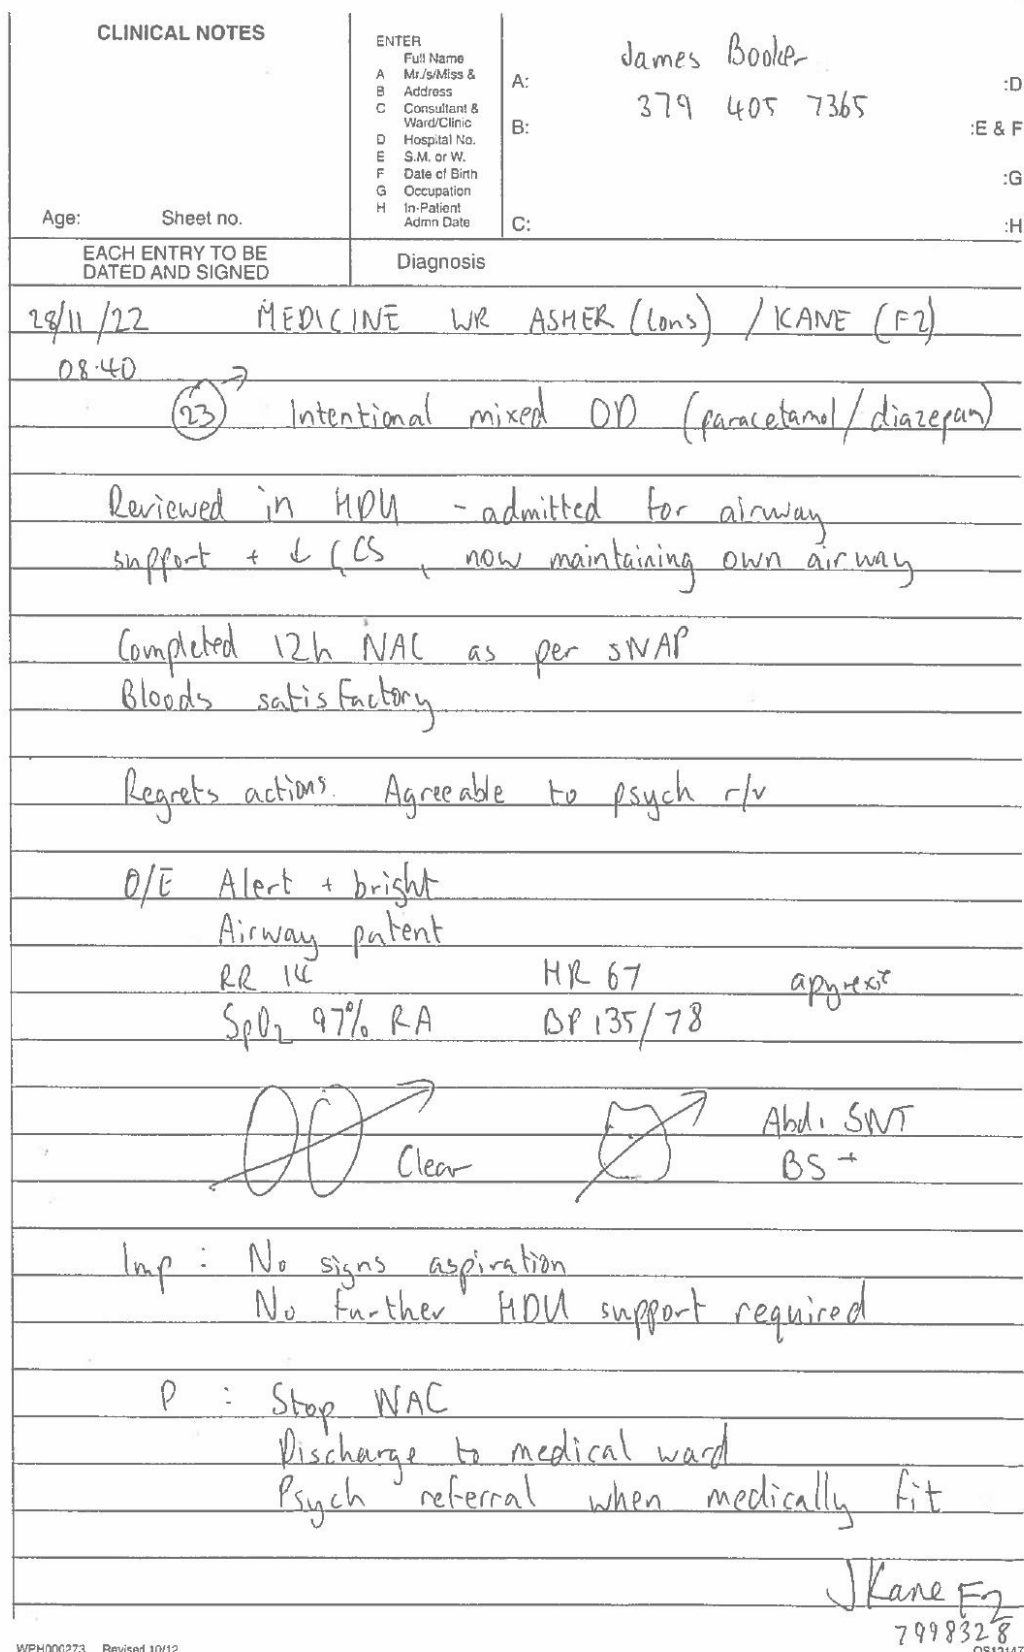 CLINICAL NOTES
Age: Sheet no.
ENTER
Full Name
A Mr./s/Miss &
B Address
C Consultant &
Ward/Clinic
D Hospital No.
E S.M. or W.
F Date of Birth
G Occupation
H In-Patient
Admn Date
James Booker
A: :D
379 405 7365
B: :E & F
:G
C: :H
EACH ENTRY TO BE
DATED AND SIGNED
Diagnosis
28/11/22 MEDICINE WR ASHER (Cons) / KANE (F2)
08.40
23 Intentional mixed OD (paracetamol/diazepam)
Reviewed in HDU - admitted for airway
support + ↓ GCS, now maintaining own airway
Completed 12h NAC as per SNAP
Bloods satisfactory
Regrets actions. Agreeable to psych r/v
O/E Alert + bright
Airway patent
RR 14 HR 67 apyrexic
SpO2 97% RA BP 135/78
Clear
Abdo SNT
BS +
Imp : No signs aspiration
No further HDU support required
P : Stop NAC
Discharge to medical ward
Psych referral when medically fit
J Kane F2
7998328
WPH000273 Revised 10/12 OS12147